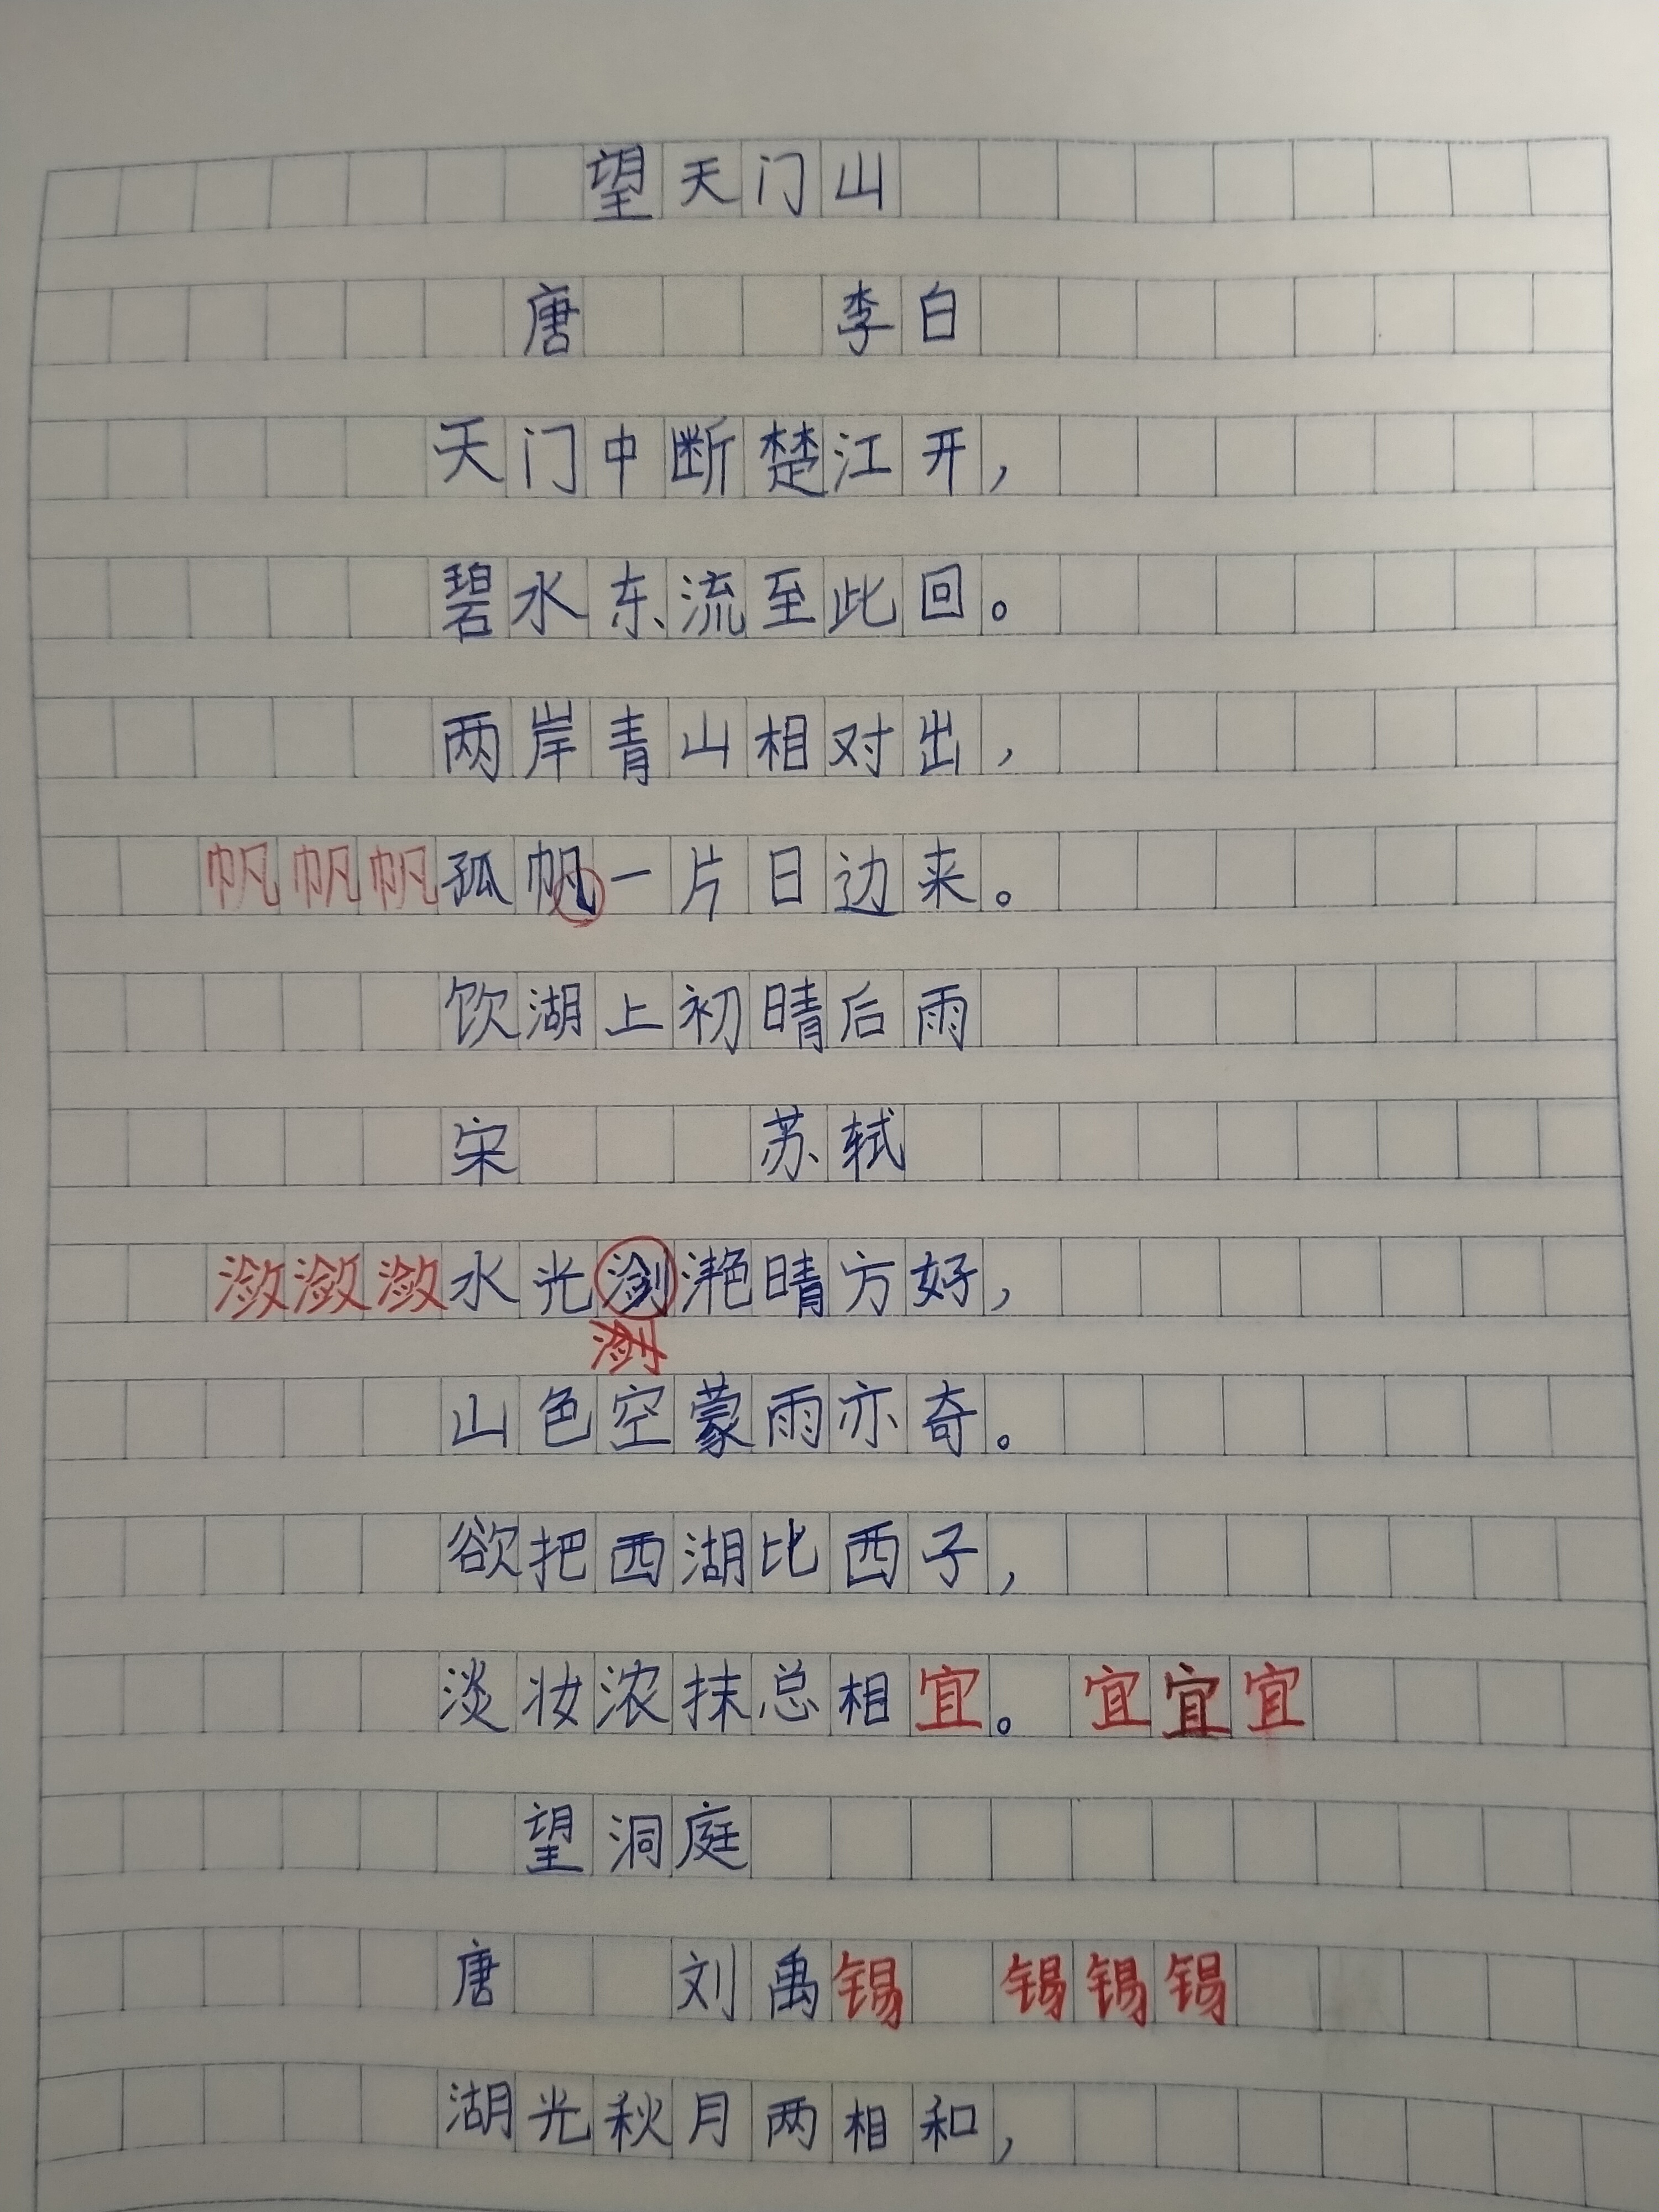 望天门山
唐 李白
天门中断楚江开，
碧水东流至此回。
两岸青山相对出，
帆帆帆孤帆一片日边来。
饮湖上初晴后雨
宋 苏轼
潋潋潋水光滟晴方好，
山色空蒙雨亦奇。
欲把西湖比西子，
淡妆浓抹总相宜。 宜宜宜
望洞庭
唐 刘禹锡 锡锡锡
湖光秋月两相和，